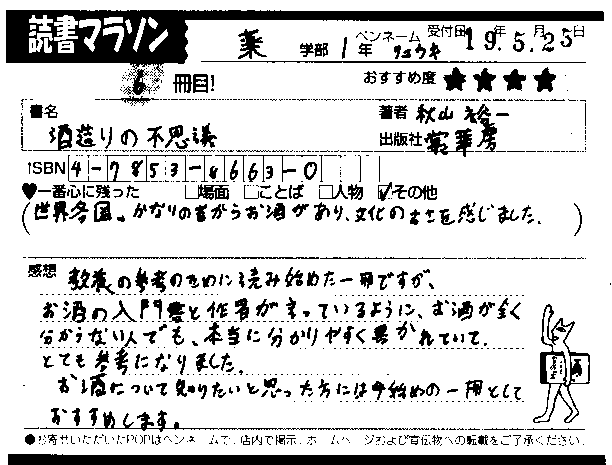 読書マラソン
薬 学部 1年 ペンネーム リュウキ 受付日 19年.5月.25日
6 冊目! おすすめ度 ★★★★
書名 酒造りの不思議 著者 秋山裕一
出版社 裳華房
ISBN 4-7853-8663-0
♥一番心に残った □場面 □ことば □人物 ☑その他
(世界各国。かなりの昔からお酒があり、文化の古さを感じました.)
感想 教養の参考のために読み始めた一冊ですが、
お酒の入門書と作者が言っているように、お酒が全く
分からない人でも、本当に分かりやすく書かれていて、
とても参考になりました。
お酒について知りたいと思った方には手始めの一冊として
おすすめします。
●お寄せいただいたPOPはペンネームで、店内で掲示、ホームページおよび宣伝物への転載をご了承ください。